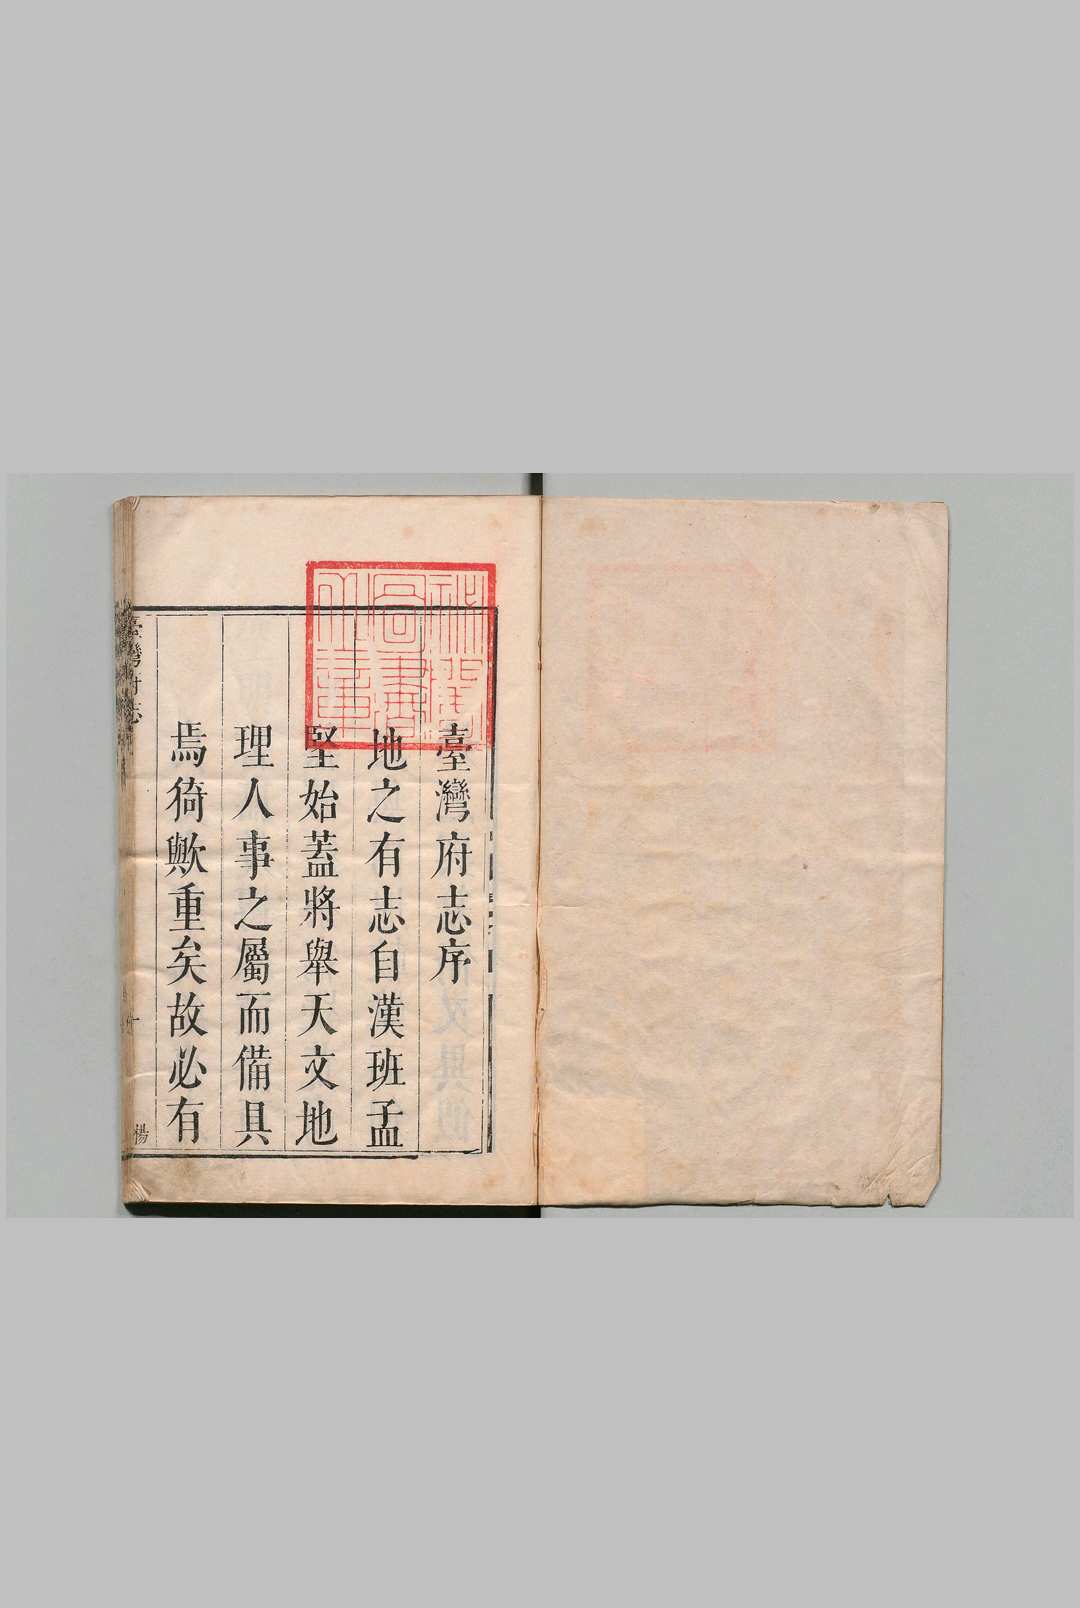 臺灣府志序
地之有志自漢班孟
堅始蓋將舉天文地
理人事之屬而備具
焉猗歟重矣故必有
臺灣府志
楊